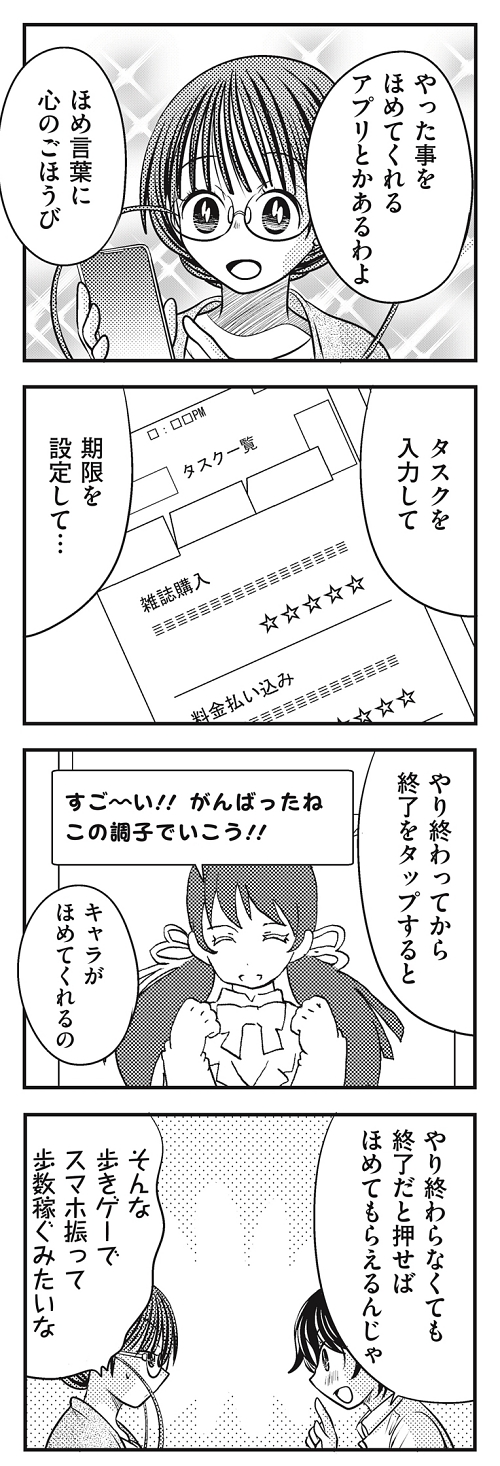 やった事を
ほめてくれる
アプリとかあるわよ
ほめ言葉に
心のごほうび
タスクを
入力して
□:□□PM
タスク一覧
雑誌購入
☆☆☆☆☆
料金払い込み
☆☆☆☆☆
期限を
設定して…
やり終わってから
終了をタップすると
すご〜い!! がんばったね
この調子でいこう!!
キャラが
ほめてくれるの
やり終わらなくても
終了だと押せば
ほめてもらえるんじゃ
そんな
歩きゲーで
スマホ振って
歩数稼ぐみたいな